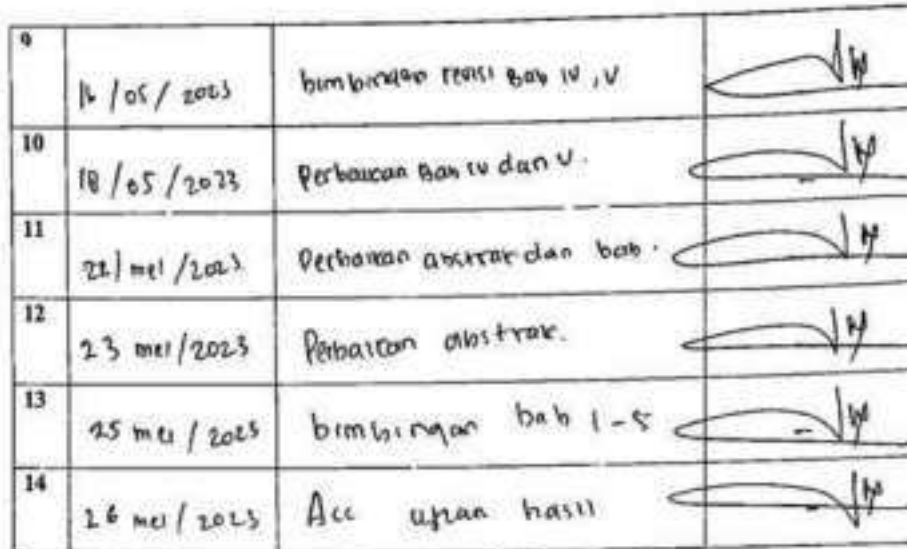 9
16/05/2023 bimbingan revisi Bab IV, V
10
18/05/2023 Perbaikan Bab IV dan V.
11
22/mei/2023 Perbaikan abstrak dan bab.
12
23 mei/2023 Perbaikan abstrak.
13
25 mei/2023 bimbingan bab 1-5
14
26 mei/2023 Acc ujian hasil